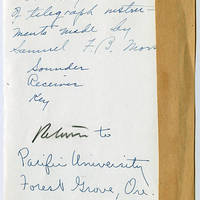 of telegraph instru-
ments made by
Samuel F. B. Mors
Sounder
Receiver
Key
Return to
Pacific University
Forest Grove, Ore.